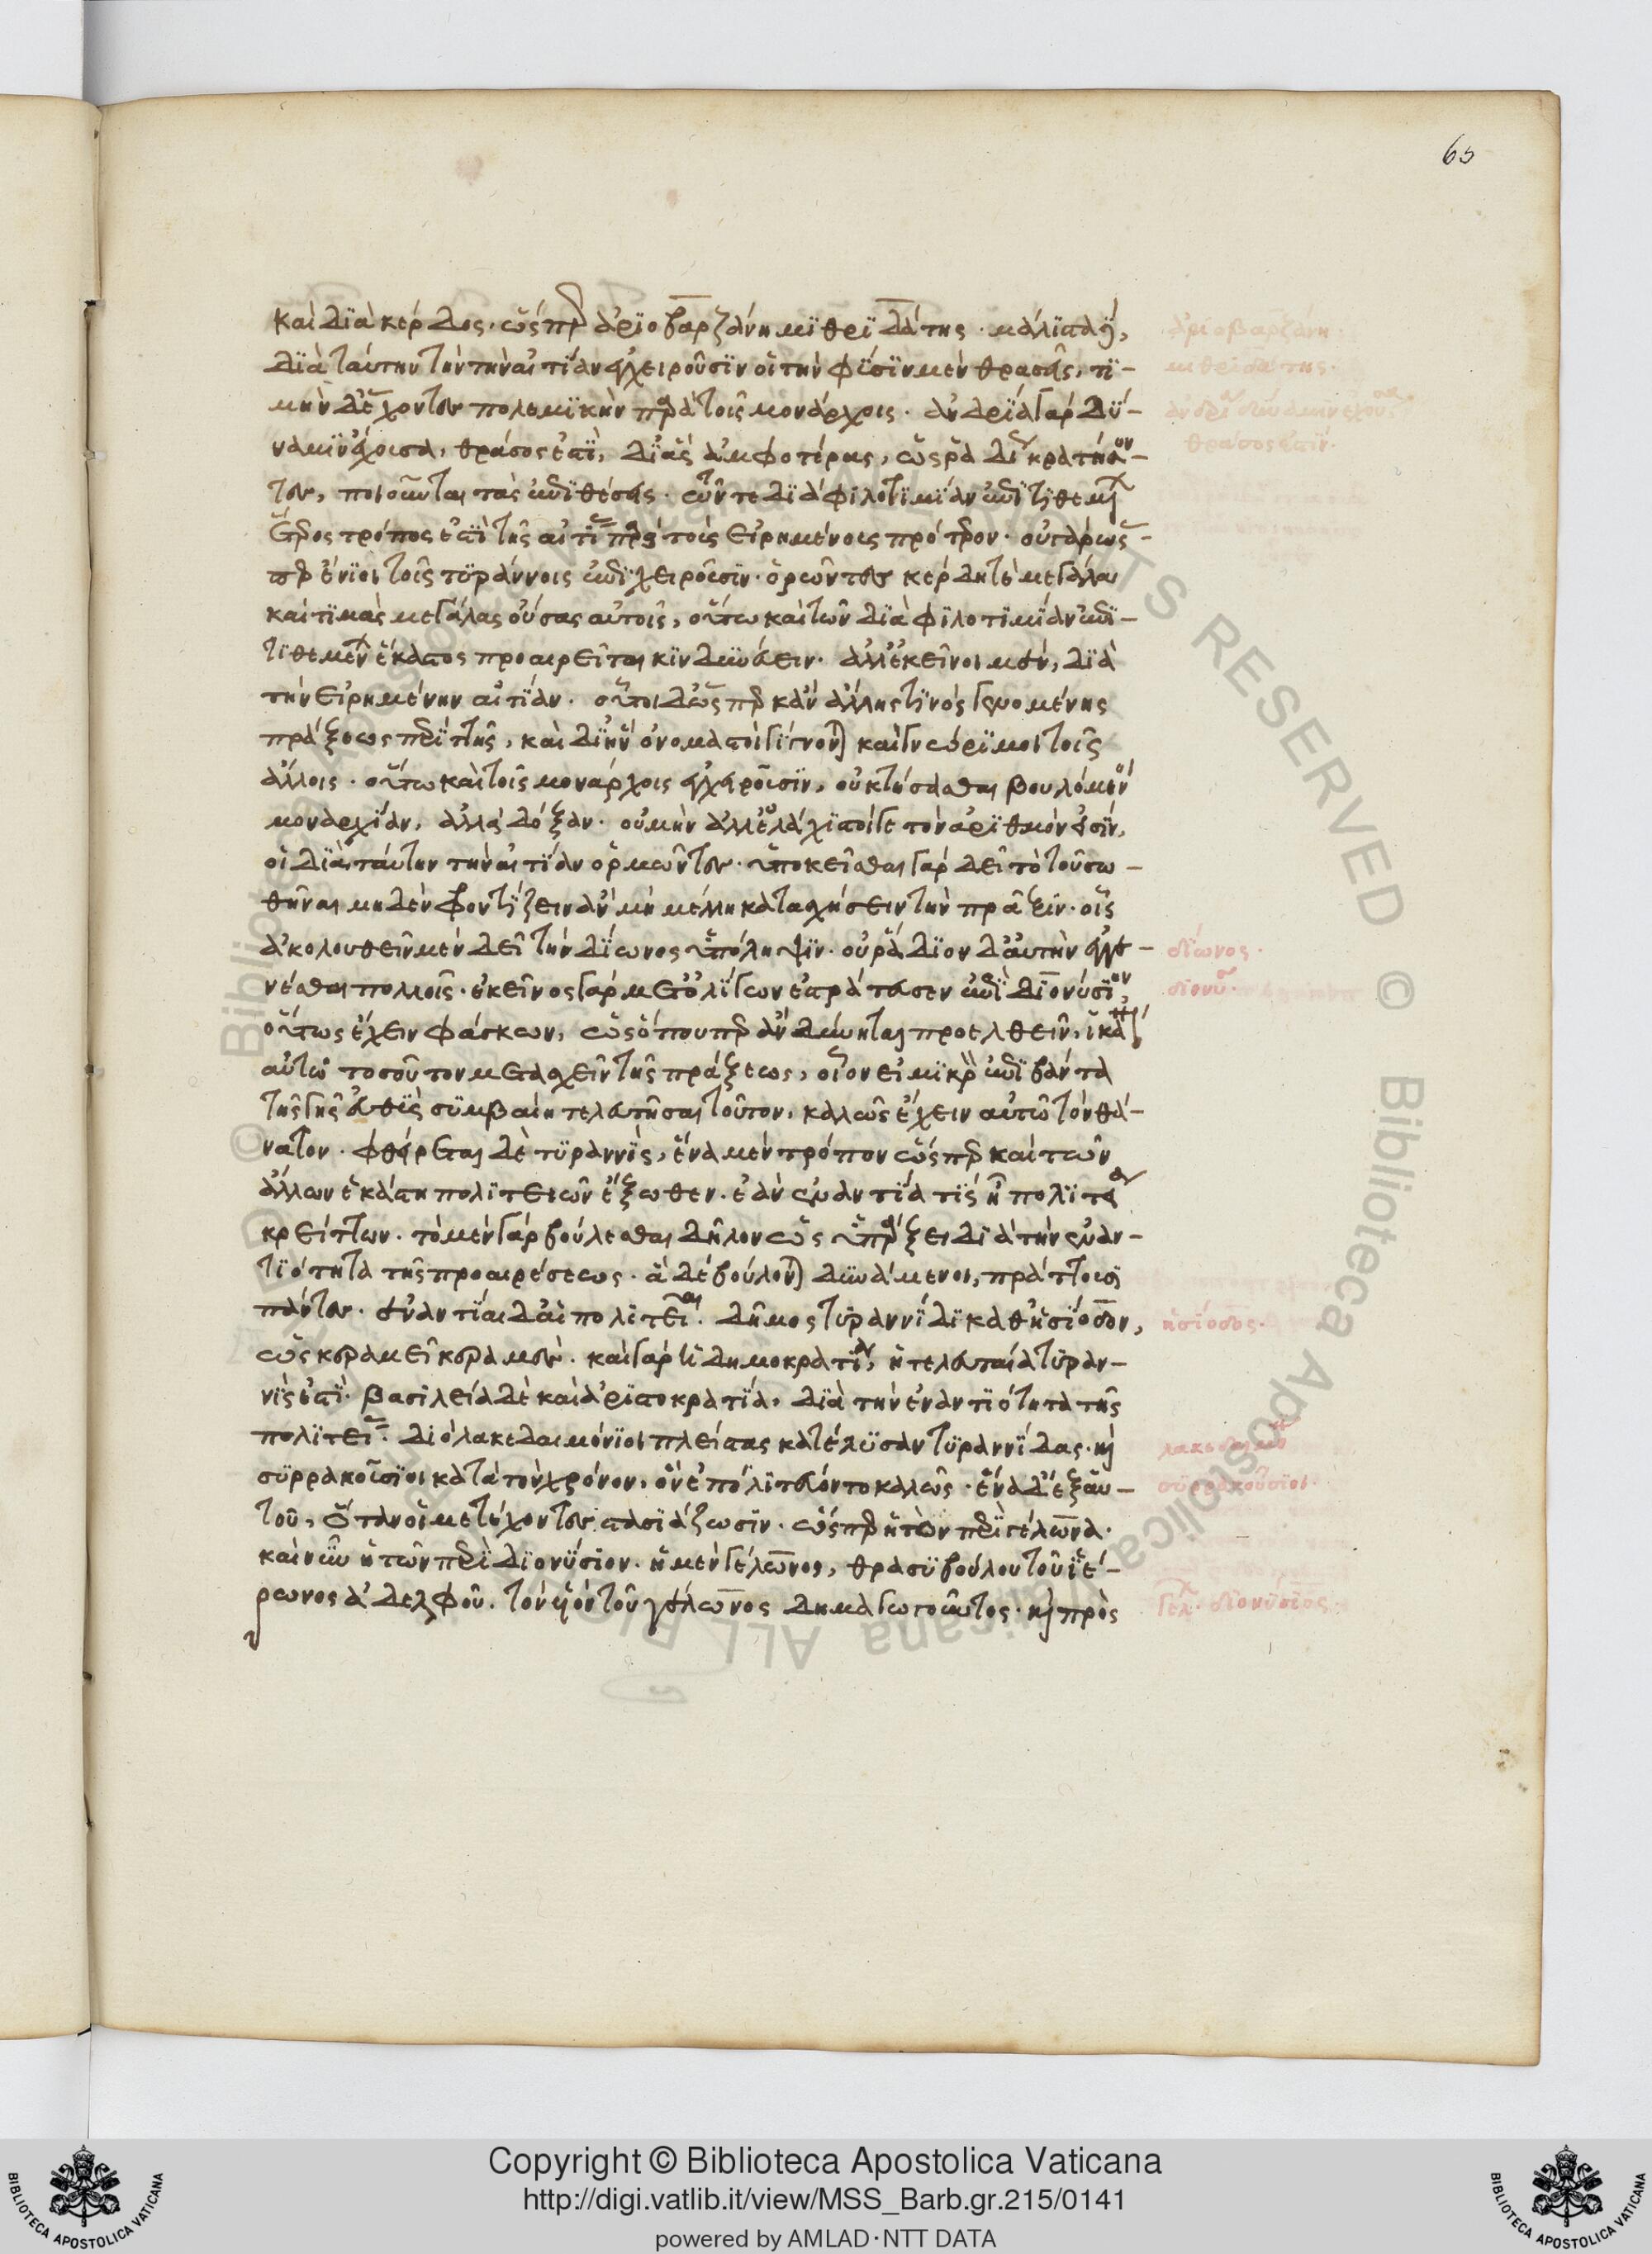 65
καὶ διὰ κέρδος· ὥσπερ ἀριοβαρζάνη μιθριδάτης· μάλιστα δὲ,
διὰ ταύτην τὴν τὴν αἰτίαν ἐγχειροῦσιν οἱ τὴν φύσιν μὲν θρασεῖς, τι-
μὴν δ' ἔχοντες πολεμικὴν παρὰ τοῖς μονάρχοις· ἀνδρία γὰρ δύ-
ναμιν ἔχουσα, θράσος ἐστὶ, δι' ἃς ἀμφοτέρας, ὡς ῥαδίως κρατήσον-
τες, ποιοῦνται τὰς ἐπιθέσεις· τῶν τε διὰ φιλοτιμίαν ἐπιτιθεμένων
ἕτερος τρόπος ἐστὶ τῆς αἰτίας παρὰ τοὺς εἰρημένους πρότερον· οὐ γὰρ ὥς-
περ ἔνιοι τοῖς τυράννοις ἐπιχειροῦσιν· ὁρῶντες κέρδη τὲ μεγάλα
καὶ τιμὰς μεγάλας οὔσας αὐτοῖς, οὕτω καὶ τῶν διὰ φιλοτιμίαν ἐπι-
τιθεμένων ἕκαστος προαιρεῖται κινδυνεύειν· ἀλλ' ἐκεῖνοι μὲν, διὰ
τὴν εἰρημένην αἰτίαν· οὗτοι δ' ὥσπερ κἂν ἄλλης τινὸς γενομένης
πράξεως περιττῆς, καὶ δι' ἣν ὀνομαστοὶ γίγνονται καὶ γνώριμοι τοῖς
ἄλλοις· οὕτω καὶ τοῖς μονάρχοις ἐγχειροῦσιν, οὐ κτήσασθαι βουλόμενοι
μοναρχίαν, ἀλλὰ δόξαν· οὐ μὴν ἀλλ' ἐλάχιστοί γε τὸν ἀριθμόν εἰσιν,
οἱ διὰ ταύτην τὴν αἰτίαν ὁρμῶντες· ὑποκεῖσθαι γὰρ δεῖ τὸ τοῦ σω-
θῆναι μηδὲν φροντίζειν ἂν μὴ μέλλη κατασχήσειν τὴν πρᾶξιν· οἷς
ἀκολουθεῖν μὲν δεῖ τὴν δίωνος ὑπόληψιν· οὐ ῥάδιον δ' αὐτὴν ἐγγε-
νέσθαι πολλοῖς· ἐκεῖνος γὰρ μετ' ὀλίγων ἐστράτευσεν ἐπὶ διονύσιον,
οὕτως ἔχειν φάσκων, ὡς ὅπου περ ἂν δύνηται προελθεῖν, ἱκανὸν
αὐτῷ τοσοῦτον μετασχεῖν τῆς πράξεως, οἷον εἰ μικρὸν ἐπιβάντα
τῆς γῆς εὐθὺς συμβαίη τελευτῆσαι τοῦτον, καλῶς ἔχειν αὐτῷ τὸν θά-
νατον· φθείρεται δὲ τυραννὶς, ἕνα μὲν τρόπον ὥσπερ καὶ τῶν
ἄλλων ἑκάστη πολιτειῶν ἔξωθεν· ἐὰν ἐναντία τίς ᾖ πολιτεία
κρείττων· τὸ μὲν γὰρ βούλεσθαι δῆλον ὡς ὑπάρξει διὰ τὴν ἐναν-
τιότητα τῆς προαιρέσεως· ἃ δὲ βούλονται δυνάμενοι, πράττουσι
πάντες· ἐναντίαι δ' αἱ πολιτεῖαι· δῆμος τυραννίδι καθ' ἡσίοδον,
ὡς κεραμεῖ κεραμεύς· καὶ γὰρ ἡ δημοκρατία, ἡ τελευταία τυραν-
νίς ἐστι· βασιλεία δὲ καὶ ἀριστοκρατία, διὰ τὴν ἐναντιότητα τῆς
πολιτείας· διὸ λακεδαιμόνιοι πλείστας κατέλυσαν τυραννίδας· καὶ
συρρακούσιοι κατὰ τὸν χρόνον, ὃν ἐπολιτεύοντο καλῶς· ἕνα δ' ἐξ αὑ-
τοῦ, ὅταν οἱ μετέχοντες στασιάζωσιν· ὥσπερ ἡ τῶν περὶ γέλωνα·
καὶ νῦν ἡ τῶν περὶ διονύσιον· ἡ μὲν γέλωνος, θρασυβούλου τοῦ ἱέ-
ρωνος ἀδελφοῦ· τὸν υἱὸν τοῦ γέλωνος δημαγωγοῦντος· καὶ πρὸς
ἀριοβαρζάνη·
μιθριδάτης·
ἀνδρία δύναμιν ἔχουσα
θράσος ἐστίν·
δίωνος·
διονυ·
ἡσίοδος·
λακεδαιμον
συρρακούσιοι·
γελ· διονύσιος·
Copyright © Biblioteca Apostolica Vaticana
http://digi.vatlib.it/view/MSS_Barb.gr.215/0141
powered by AMLAD·NTT DATA
BIBLIOTECA APOSTOLICA VATICANA
BIBLIOTECA APOSTOLICA VATICANA